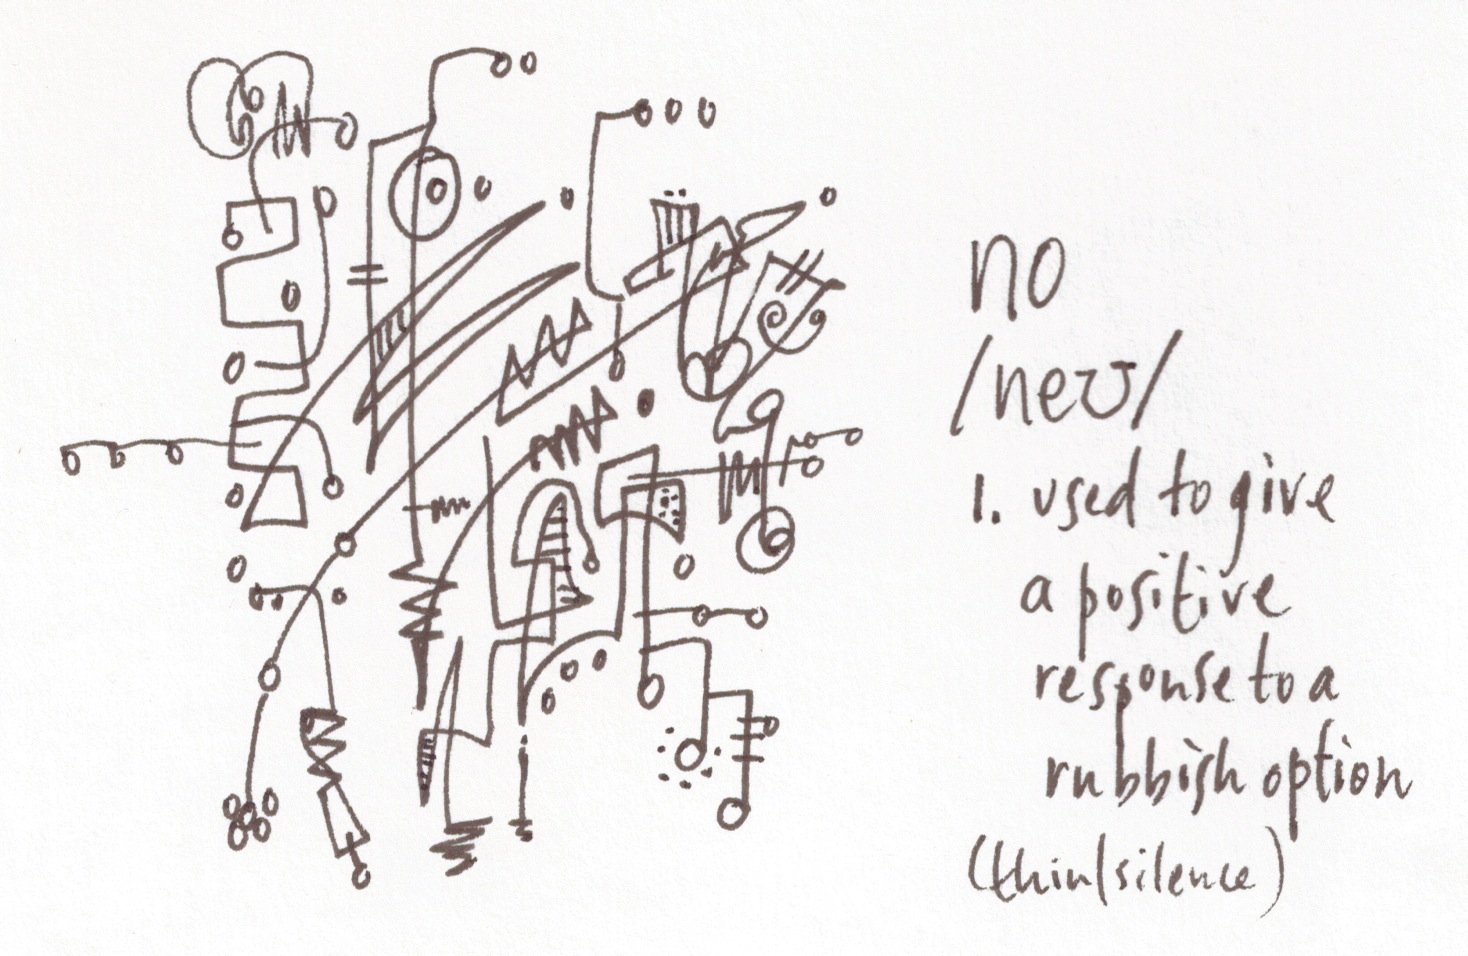 no
/neʊ/
1. used to give
a positive
response to a
rubbish option
(thin/silence)